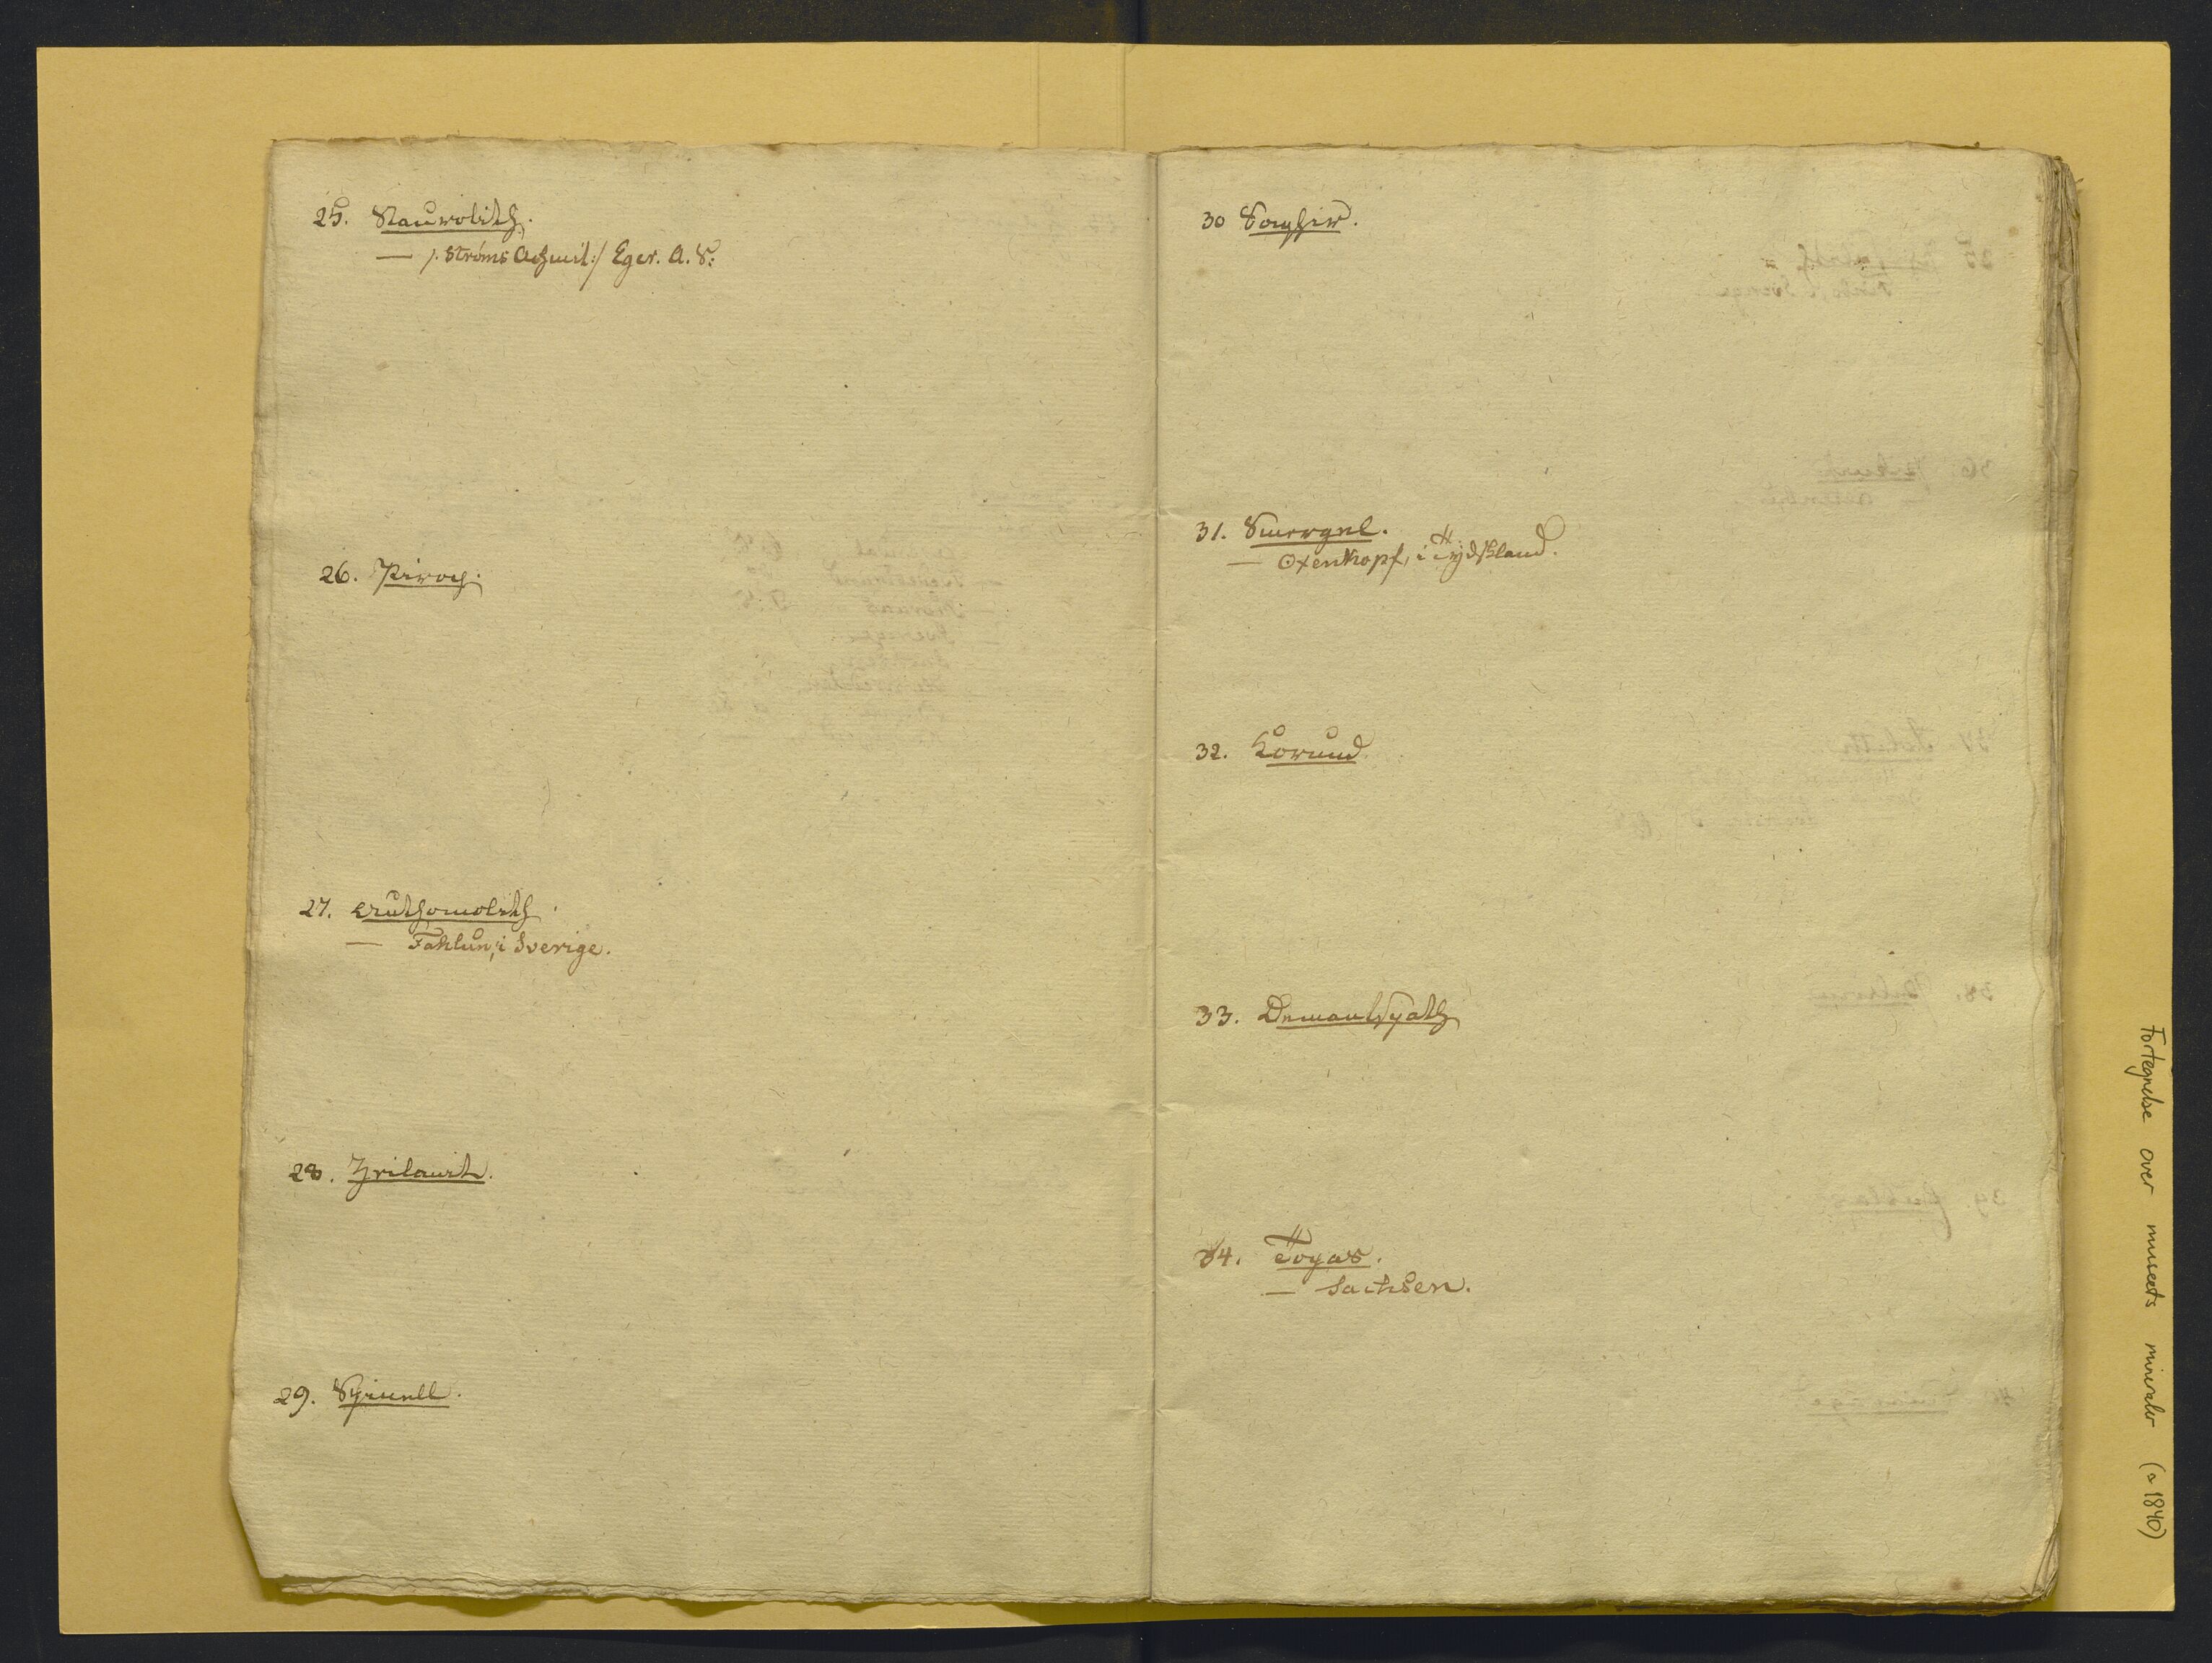 25. Staurolith.
— /: Strøms Achmit :/ Eger. A. S:
26. Pirop.
27. Automolith
— Fahlun, i Sverige.
28. Zeilanit.
29. Spinell.
30 Saphir.
31. Smergel.
— Oxenkopf, i Tydskland.
32. Korund
33. Demantspath
34. Topas.
— Sachsen.
Fortegnelse over museets mineraler (ca 1840)